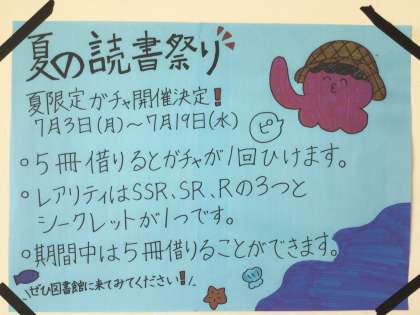 夏の読書祭り
夏限定ガチャ開催決定!
7月3日(月)～7月19日(水)
ピ
○5冊借りるとガチャが1回ひけます。
○レアリティはSSR、SR、Rの3つと
シークレットが1つです。
○期間中は5冊借りることができます。
\ぜひ図書館に来てみてください!/